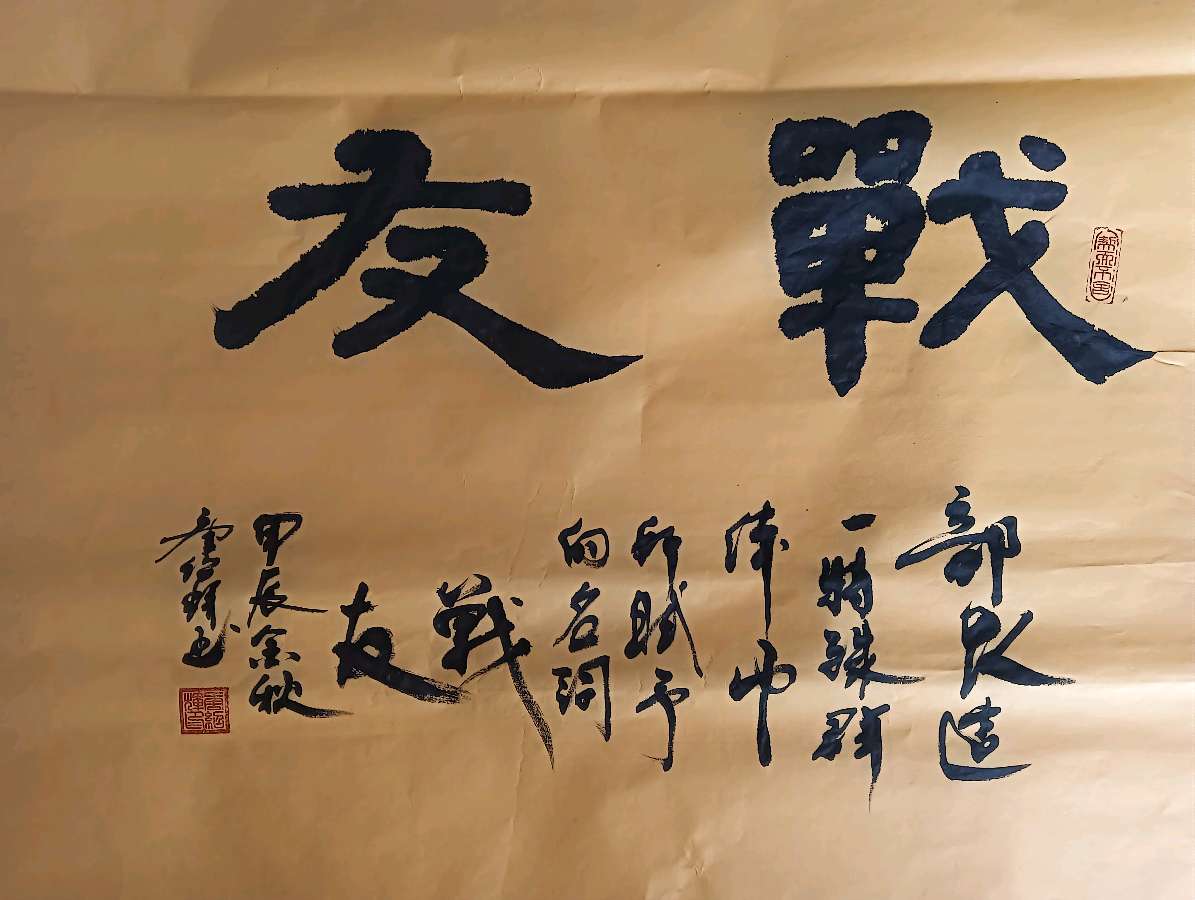 戰友
部隊這
一特殊群
体中
所賦予
的名詞
戰
友
甲辰金秋
书